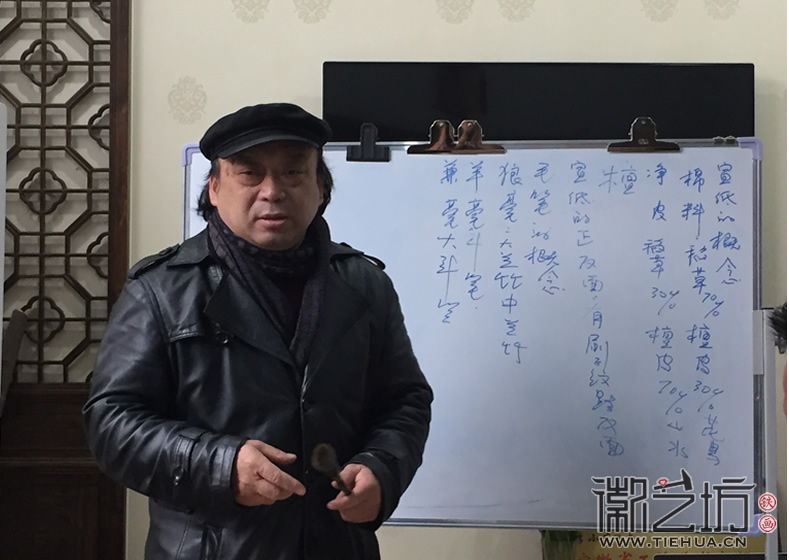 宣纸的概念
棉料 稻草70% 檀皮30% 花鸟
净皮 稻草30% 檀皮70% 山水
檀
宣纸的正反面：有刷子纹路反面
毛笔的概念
狼毫：大兰竹中兰竹
羊毫斗笔
兼毫大斗笔
徽艺坊 铁画
WWW.TIEHUA.CN